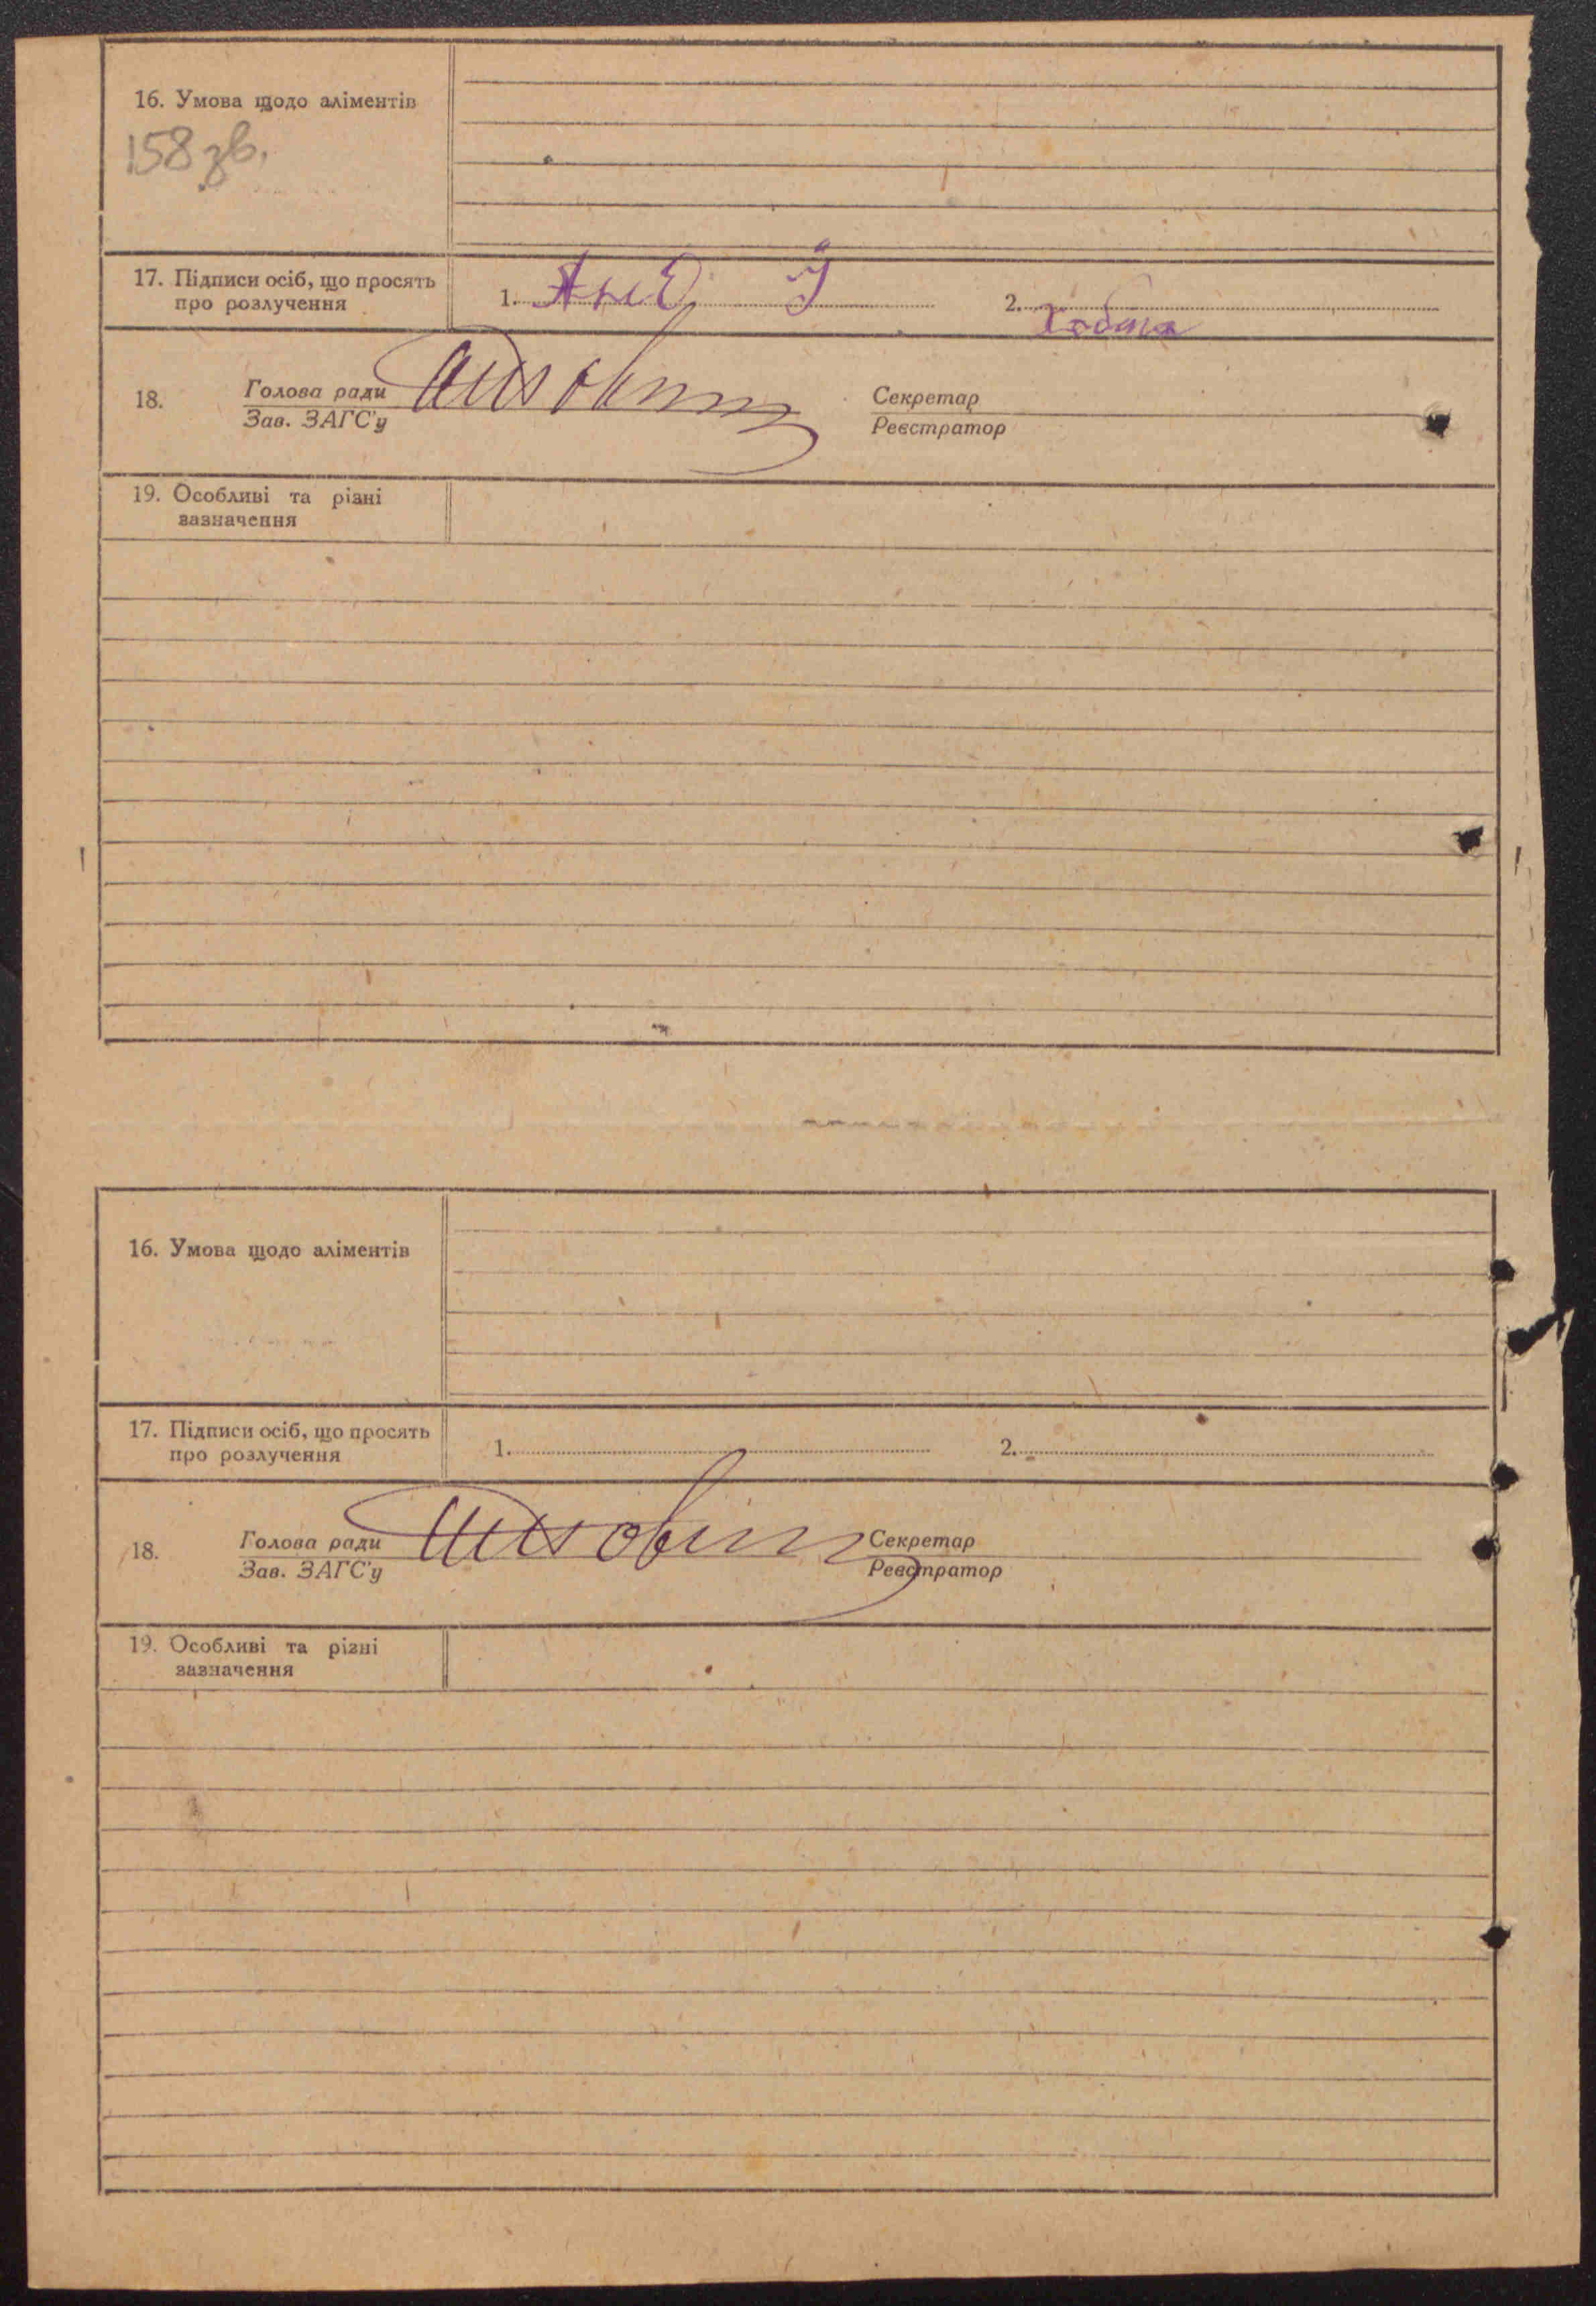 16. Умова щодо аліментів
158 зв.
17. Підписи осіб, що просять
про розлучення
1.
2.
18.
Голова ради
Зав. ЗАГС'у
Секретар
Реєстратор
19. Особливі та різні
зазначення
16. Умова щодо аліментів
17. Підписи осіб, що просять
про розлучення
1.
2.
18.
Голова ради
Зав. ЗАГС'у
Секретар
Реєстратор
19. Особливі та різні
зазначення